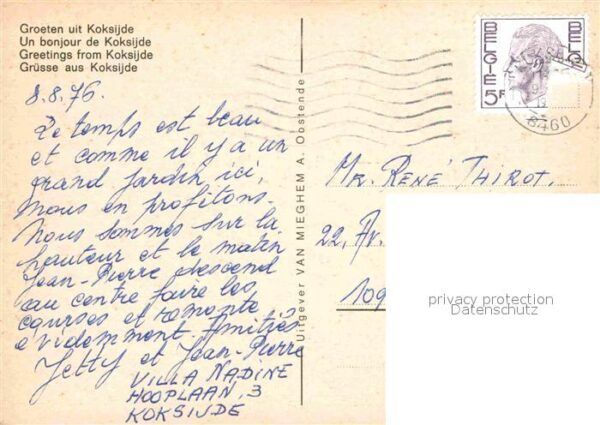 Groeten uit Koksijde
Un bonjour de Koksijde
Greetings from Koksijde
Grüsse aus Koksijde
8.8.76.
Le temps est beau
et comme il y a un
grand jardin ici,
nous en profitons.
Nous sommes sur la
hauteur et le matin
Jean-Pierre descend
au centre faire les
courses et remonte
évidemment. Amitiés
Jetty et Jean-Pierre
VILLA NADINE
HOOPLAAN, 3
KOKSIJDE
Uitgever VAN MIEGHEM A. Oostende
BELGIE
5F
8460
MR. RENÉ THIROT.
22, AV.
109
privacy protection
Datenschutz